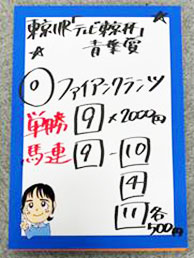 東京11R「テレビ東京杯」
青葉賞
◎ ファイアンクランツ
単勝 9 ×2000円
馬連 9 - 10
4
11 各
500円